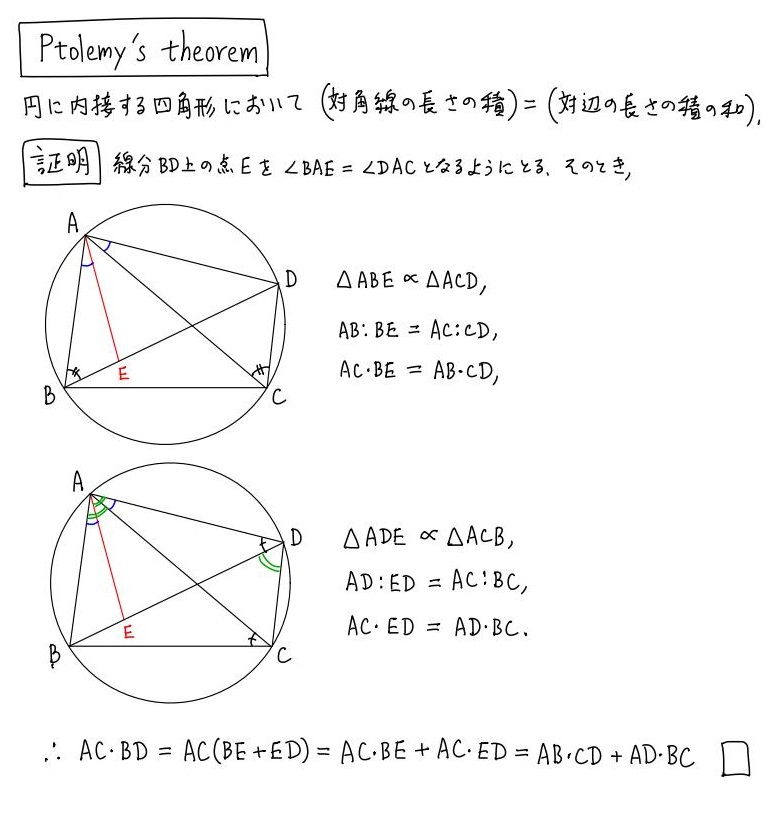 Ptolemy's theorem
円に内接する四角形において (対角線の長さの積) = (対辺の長さの積の和).
証明 線分BD上の点Eを ∠BAE = ∠DAC となるようにとる. そのとき,
A
D
B
E
C
△ABE ∝ △ACD,
AB:BE = AC:CD,
AC·BE = AB·CD,
A
D
B
E
C
△ADE ∝ △ACB,
AD:ED = AC:BC,
AC·ED = AD·BC.
∴ AC·BD = AC(BE+ED) = AC·BE + AC·ED = AB·CD + AD·BC □